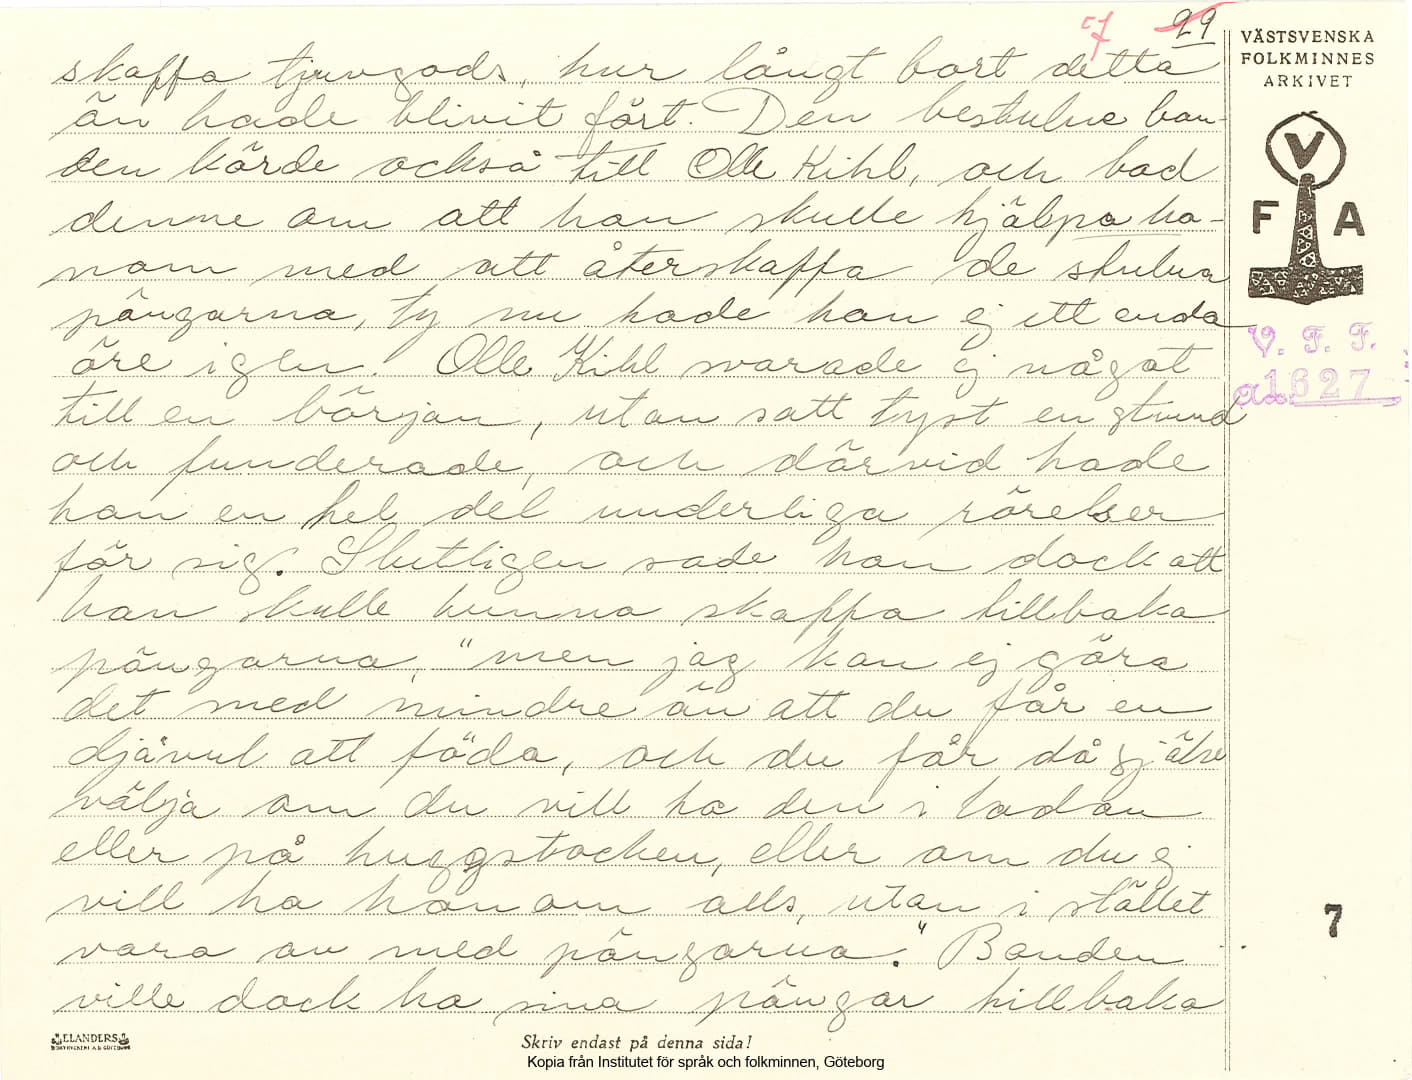 7 29
VÄSTSVENSKA
FOLKMINNES
ARKIVET
V
F A
V. F. F.
1627
skaffa tjuvgods, hur långt bort detta
än hade blivit fört. Den bestulne bon-
den körde också till Olle Kihl, och bad
denne om att han skulle hjälpa ho-
nom med att återskaffa de stulna
pängarna, ty nu hade han ej ett enda
öre igen. Olle Kihl svarade ej något
till en början, utan satt tyst en stund
och funderade, och därvid hade
han en hel del underliga rörelser
för sig. Slutligen sade han dock att
han skulle kunna skaffa tillbaka
pängarna, "men jag kan ej göra
det med mindre än att du får en
djävul att föda, och du får då själv
välja om du vill ha den i ladan
eller på huggstocken, eller om du ej
vill ha honom alls, utan i stället
vara av med pängarna." Bonden
ville dock ha sina pängar tillbaka
7
ELANDERS
Skriv endast på denna sida!
Kopia från Institutet för språk och folkminnen, Göteborg